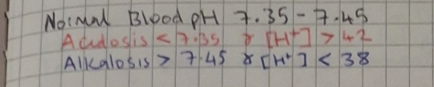 Normal Blood pH 7.35 - 7.45
Acidosis < 7.35 & [H⁺] > 42
Alkalosis > 7.45 & [H⁺] < 38